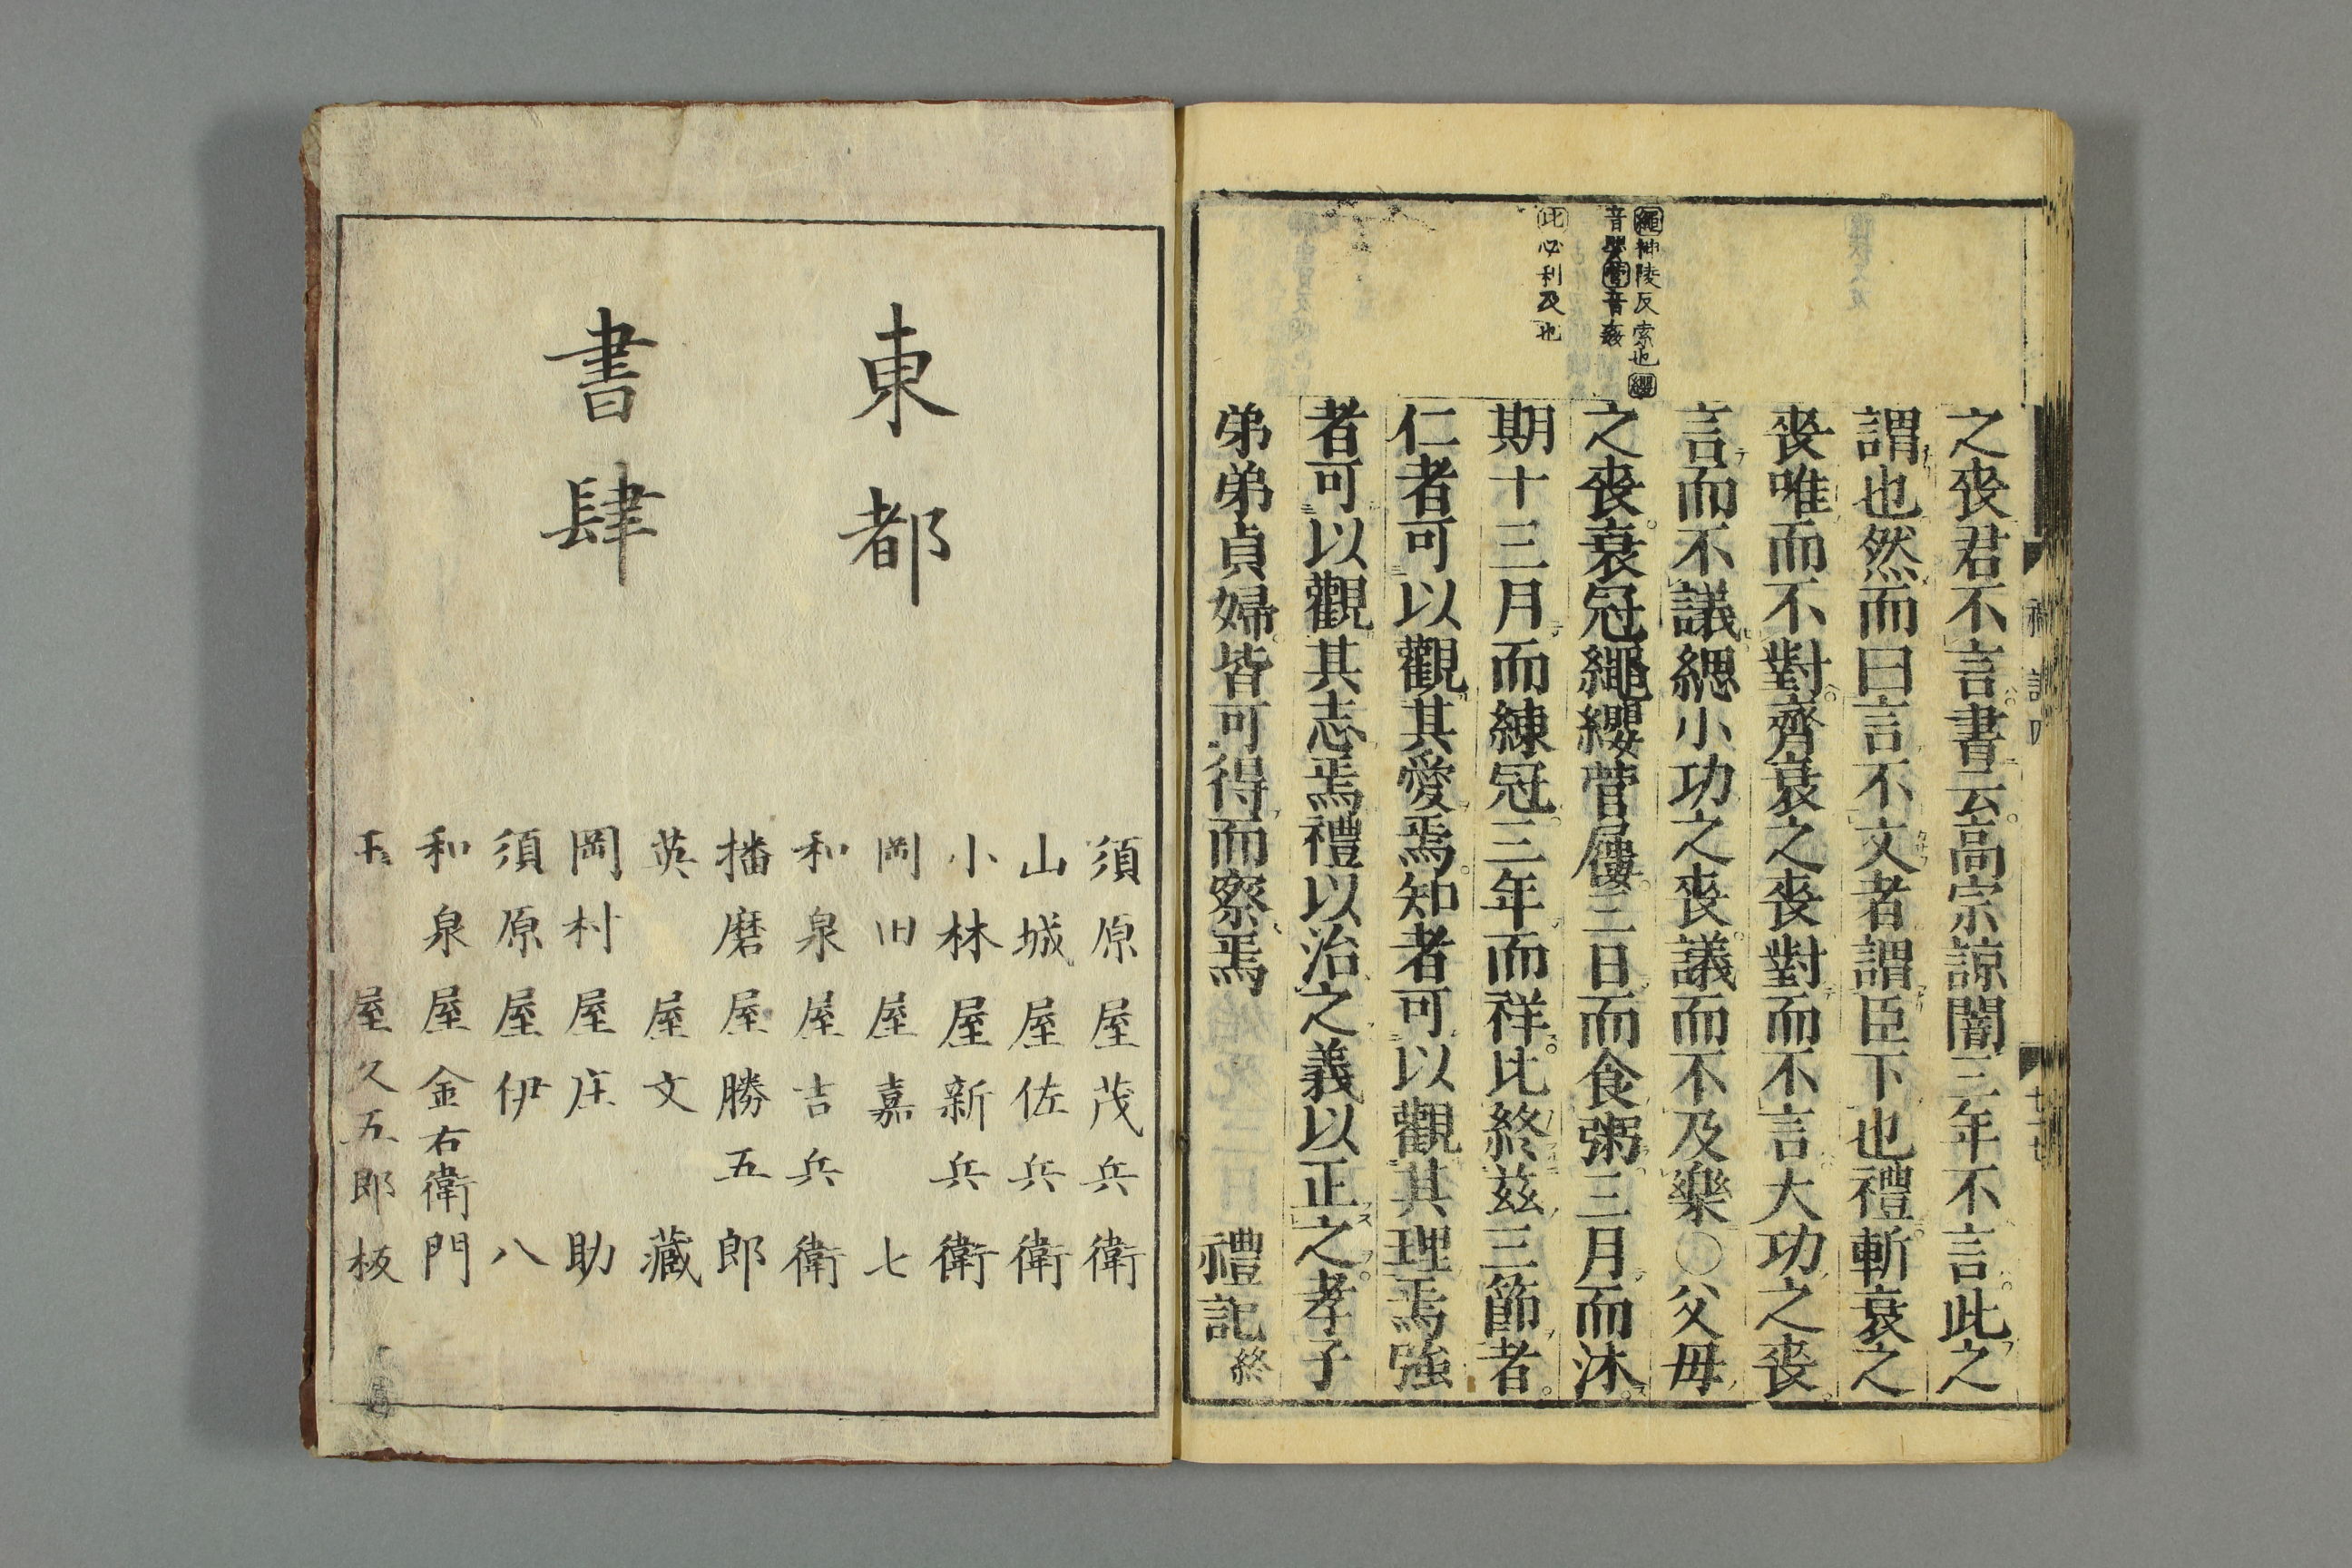 繩神陵反索也纓
音嬰菅音姦
比必利反也
之喪君不言書云高宗諒闇三年不言此之
謂也然而曰言不文者謂臣下也禮斬衰之
喪唯而不對齊衰之喪對而不言大功之喪
言而不議緦小功之喪議而不及樂〇父母
之喪衰冠繩纓菅屨三日而食粥三月而沐
期十三月而練冠三年而祥比終茲三節者
仁者可以觀其愛焉知者可以觀其理焉強
者可以觀其志焉禮以治之義以正之孝子
弟弟貞婦皆可得而察焉
禮記終
東都
書肆
須原屋茂兵衛
山城屋佐兵衛
小林屋新兵衛
岡田屋嘉七
和泉屋吉兵衛
播磨屋勝五郎
英屋文藏
岡村屋庄助
須原屋伊八
和泉屋金右衛門
屋久五郎板